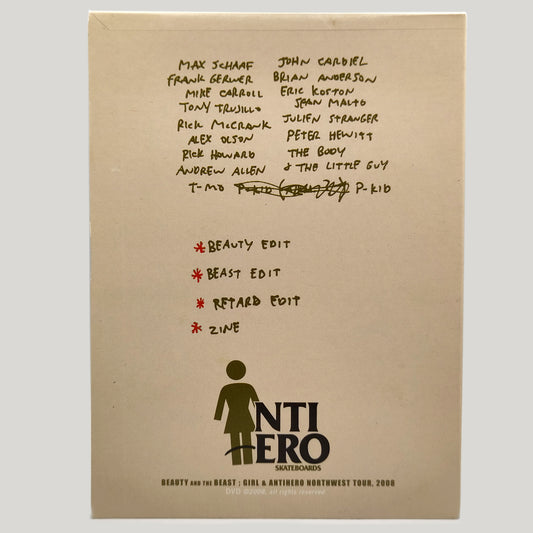 MAX SCHAAF JOHN CARDIEL
FRANK GERWER BRIAN ANDERSON
MIKE CARROLL ERIC KOSTON
TONY TRUJILLO SEAN MALTO
RICK McCRANK JULIEN STRANGER
ALEX OLSON PETER HEWITT
RICK HOWARD THE BODY
ANDREW ALLEN & THE LITTLE GUY
T-MO P-KID P-KID
*BEAUTY EDIT
*BEAST EDIT
* RETARD EDIT
* ZINE
NTI
ERO
SKATEBOARDS
BEAUTY AND THE BEAST ; GIRL & ANTIHERO NORTHWEST TOUR, 2008
DVD ©2008, all rights reserved